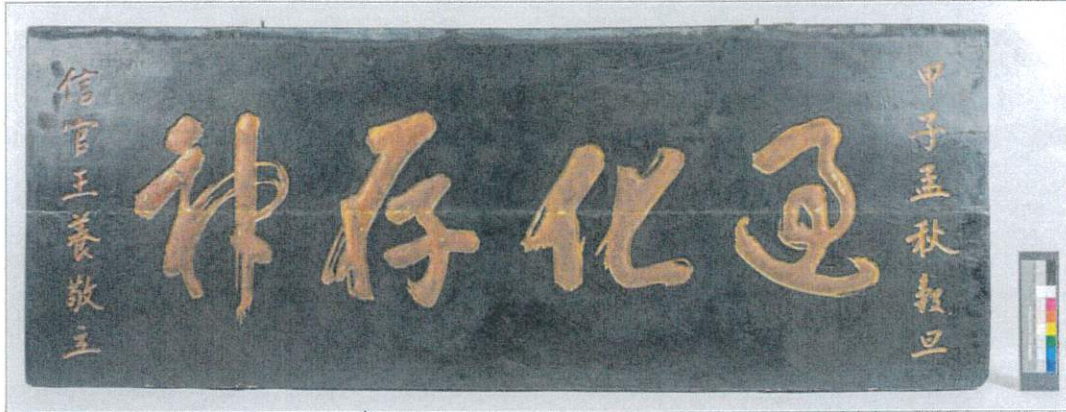 甲子孟秋穀旦
過化存神
信官王養敬立